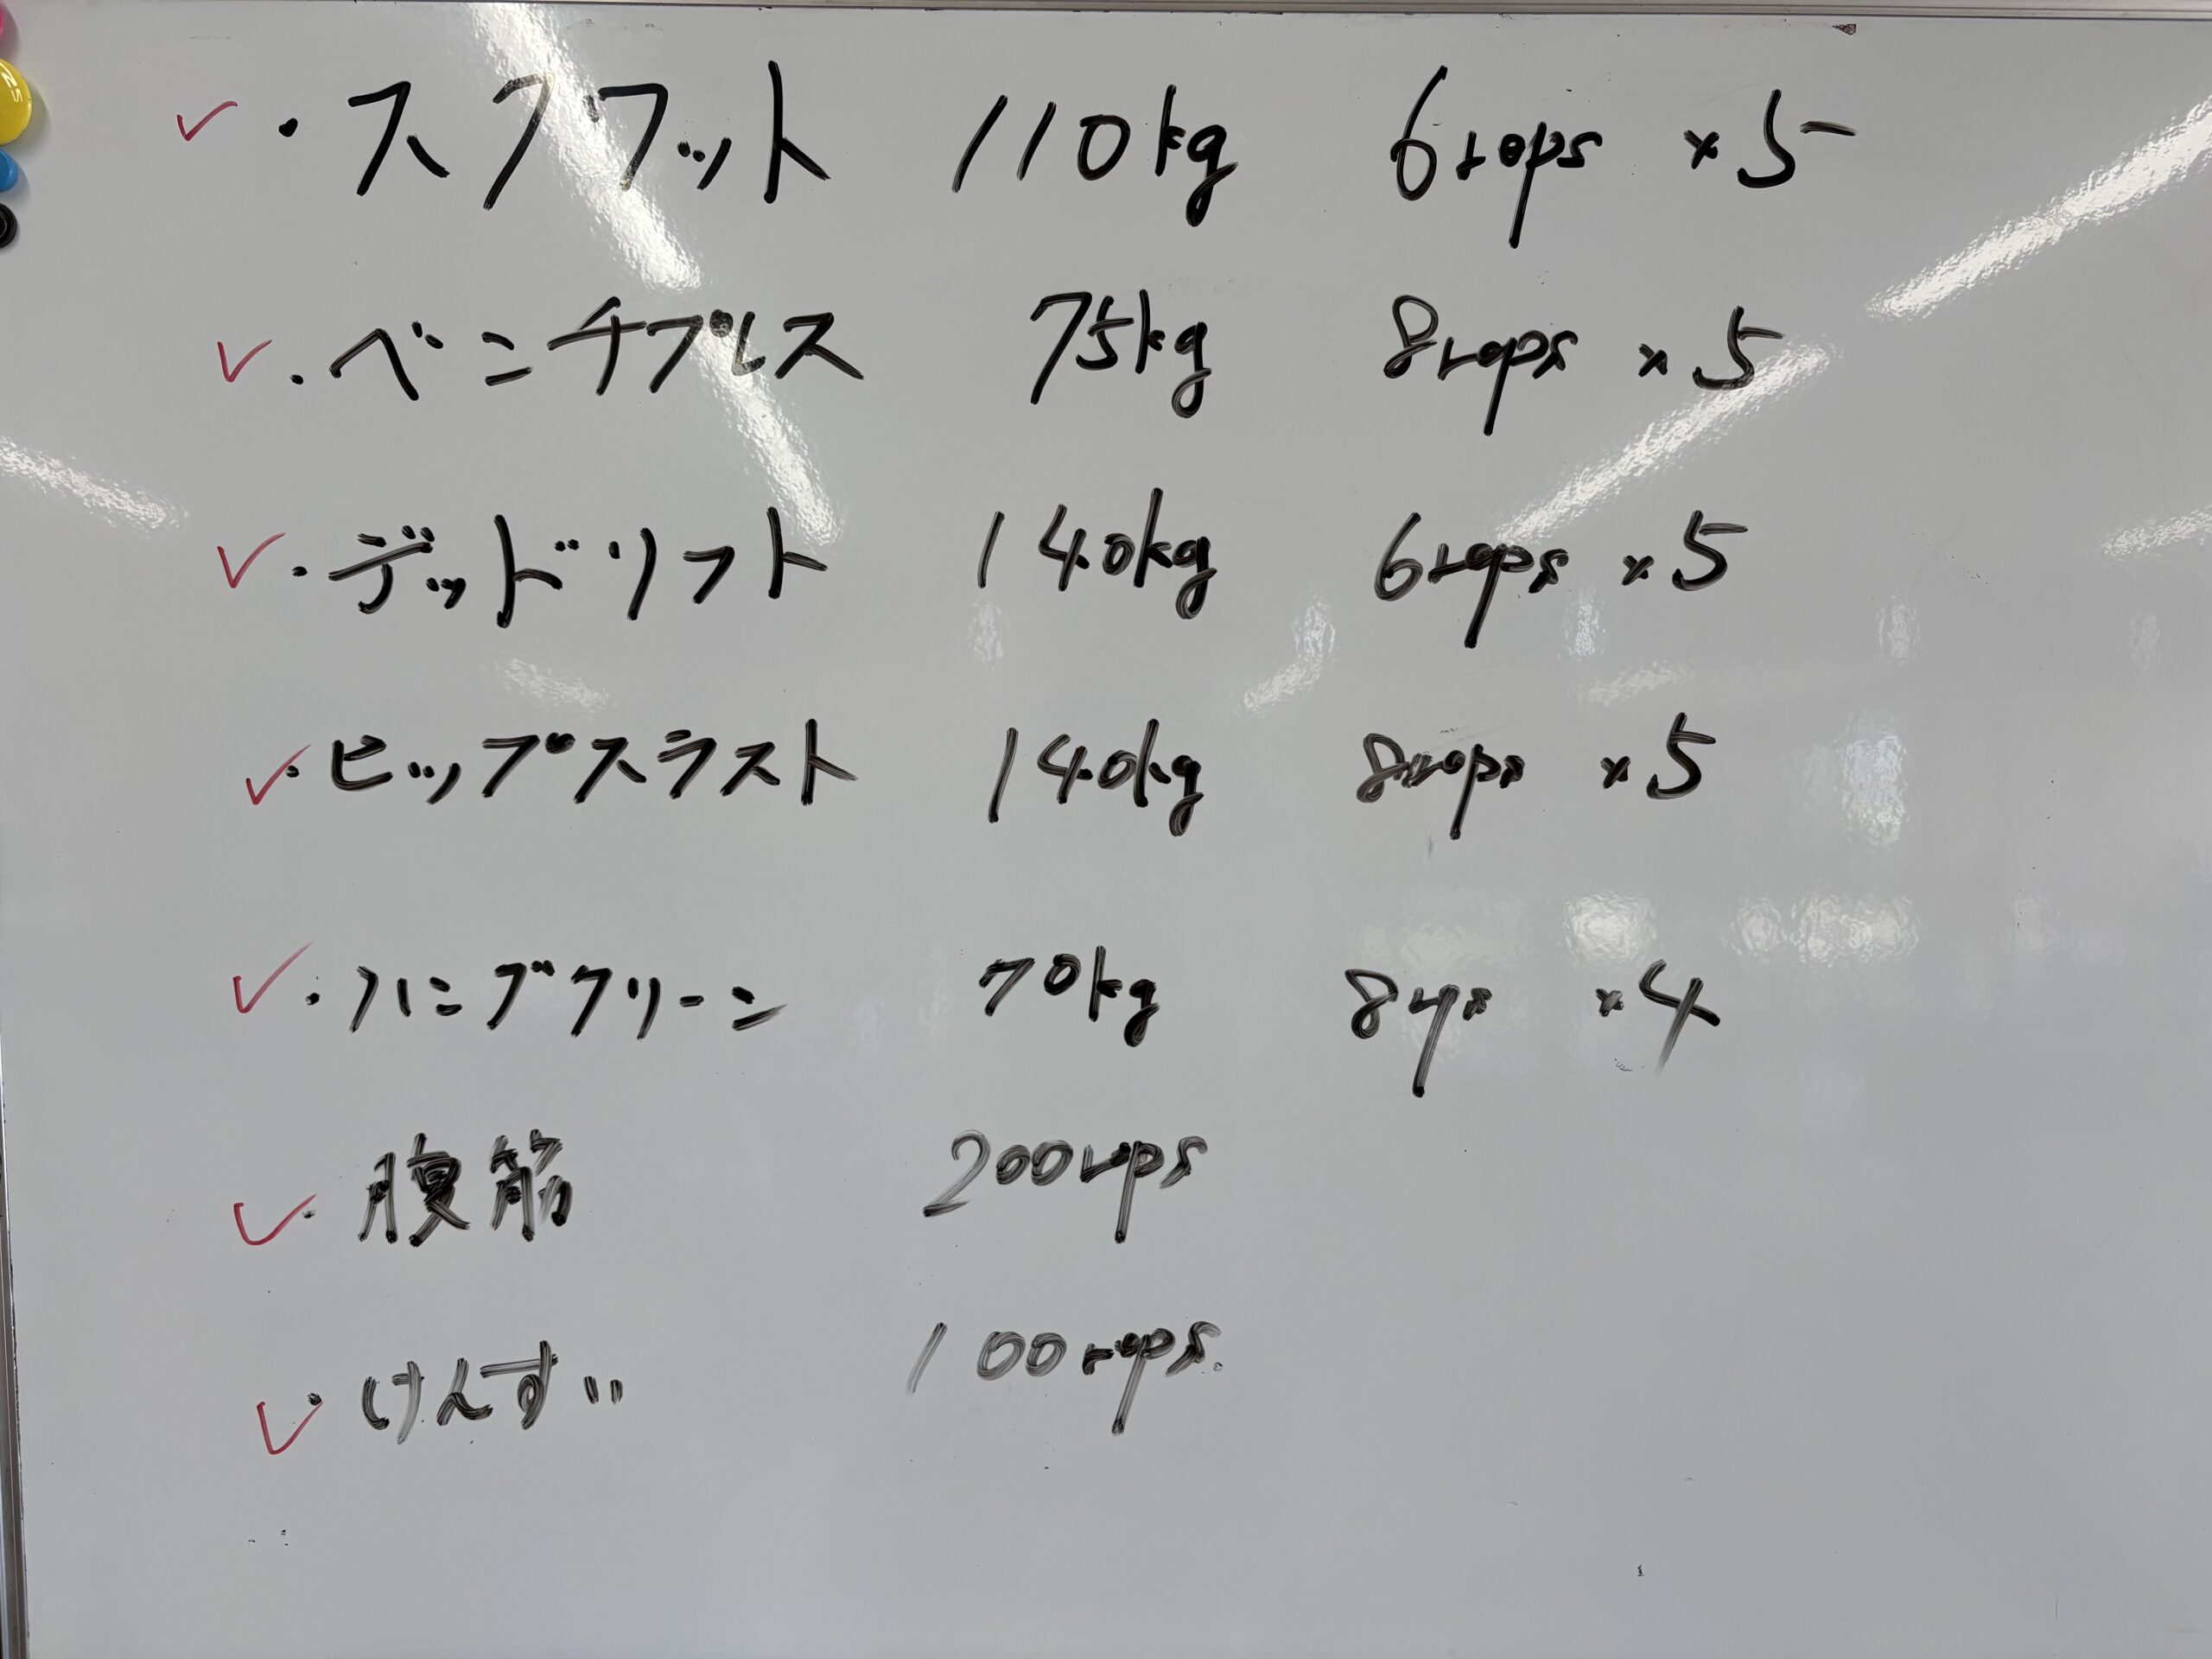 ✓・スクワット 110kg 6reps ×5
✓・ベンチプレス 75kg 8reps ×5
✓・デッドリフト 140kg 6reps ×5
✓・ヒップスラスト 140kg 8reps ×5
✓・ハングクリーン 70kg 8rps ×4
✓・腹筋 200reps
✓・けんすい 100reps.